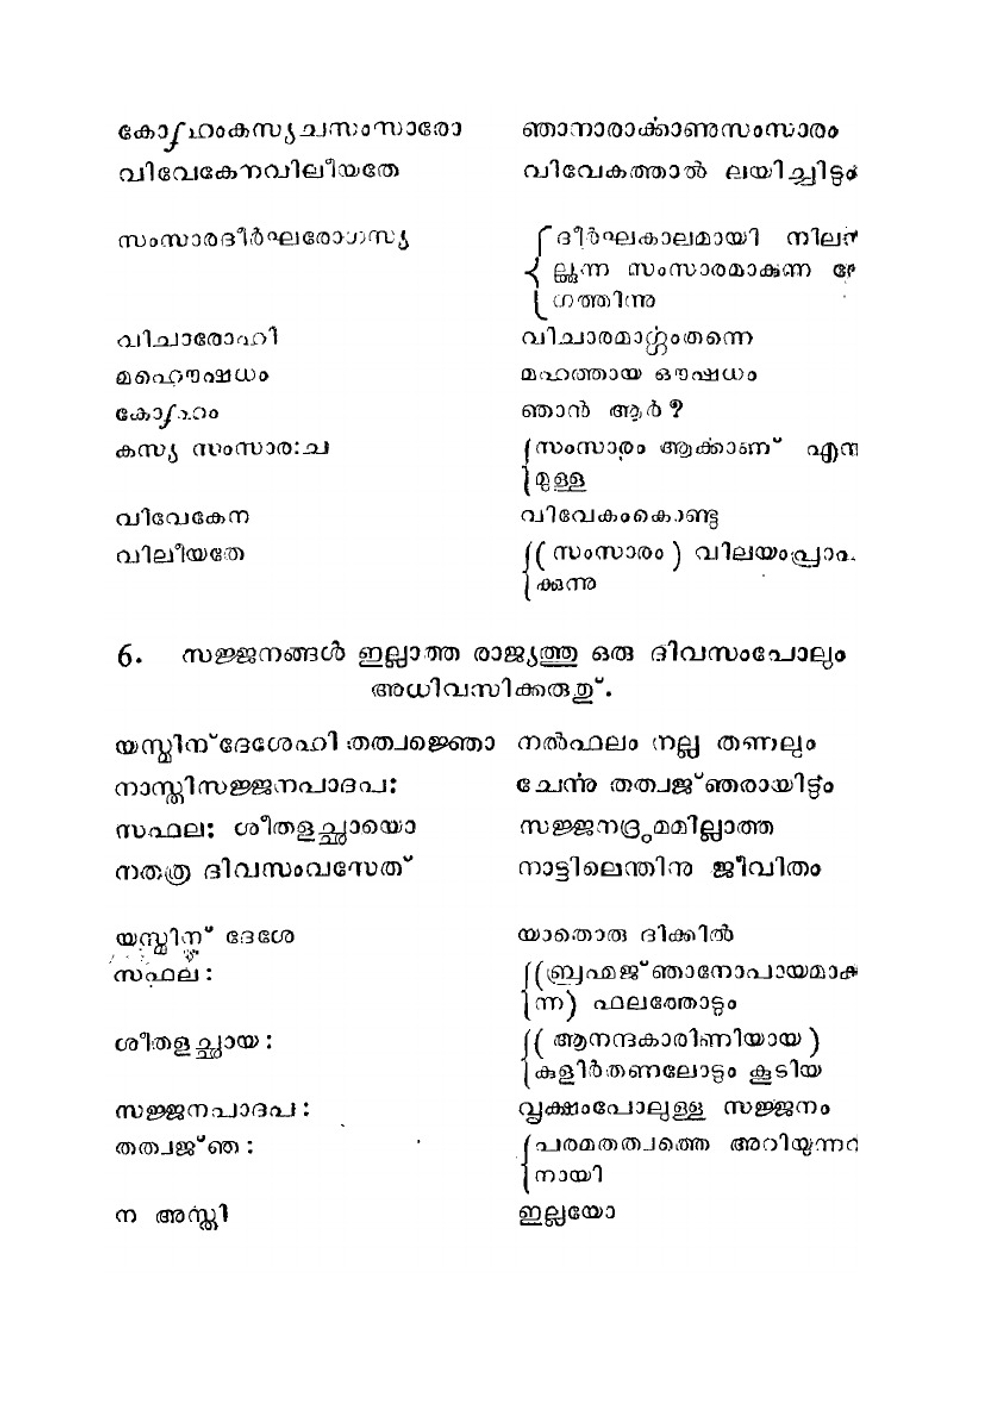 കോഽഹംകസ്യചസംസാരോ ഞാനാരാർക്കാണുസംസാരം
വിവേകേനവിലീയതേ വിവേകത്താൽ ലയിച്ചിട്ടും
സംസാരദീർഘരോഗസ്യ ദീർഘകാലമായി നില
ല്ക്കുന്ന സംസാരമാകുന്ന രോ
ഗത്തിന്നു
വിചാരോഹി വിചാരമാർഗ്ഗംതന്നെ
മഹൌഷധം മഹത്തായ ഔഷധം
കോഽഹം ഞാൻ ആർ?
കസ്യ സംസാര:ച സംസാരം ആർക്കാണ് എന്ന
മുള്ള
വിവേകേന വിവേകംകൊണ്ടു
വിലീയതേ (സംസാരം) വിലയംപ്രാപി
ക്കുന്നു
6. സജ്ജനങ്ങൾ ഇല്ലാത്ത രാജ്യത്തു ഒരു ദിവസംപോലും
അധിവസിക്കരുതു്.
യസ്മിന് ദേശേഹി തത്വജ്ഞൊ നൽഫലം നല്ല തണലും
നാസ്തിസജ്ജനപാദപ: ചേർന്നു തത്വജ്ഞരായിട്ടും
സഫല: ശീതളച്ഛായൊ സജ്ജനദ്രുമമില്ലാത്ത
നതത്ര ദിവസംവസേത് നാട്ടിലെന്തിനു ജീവിതം
യസ്മിന് ദേശേ യാതൊരു ദിക്കിൽ
സഫല: (ബ്രഹ്മജ്ഞാനോപായമാക
ന്ന) ഫലത്തോടും
ശീതളച്ഛായ: (ആനന്ദകാരിണിയായ)
കുളിർതണലോടും കൂടിയ
സജ്ജനപാദപ: വൃക്ഷംപോലുള്ള സജ്ജനം
തത്വജ്ഞ: പരമതത്വത്തെ അറിയുന്നവ
നായി
ന അസ്തി ഇല്ലയോ